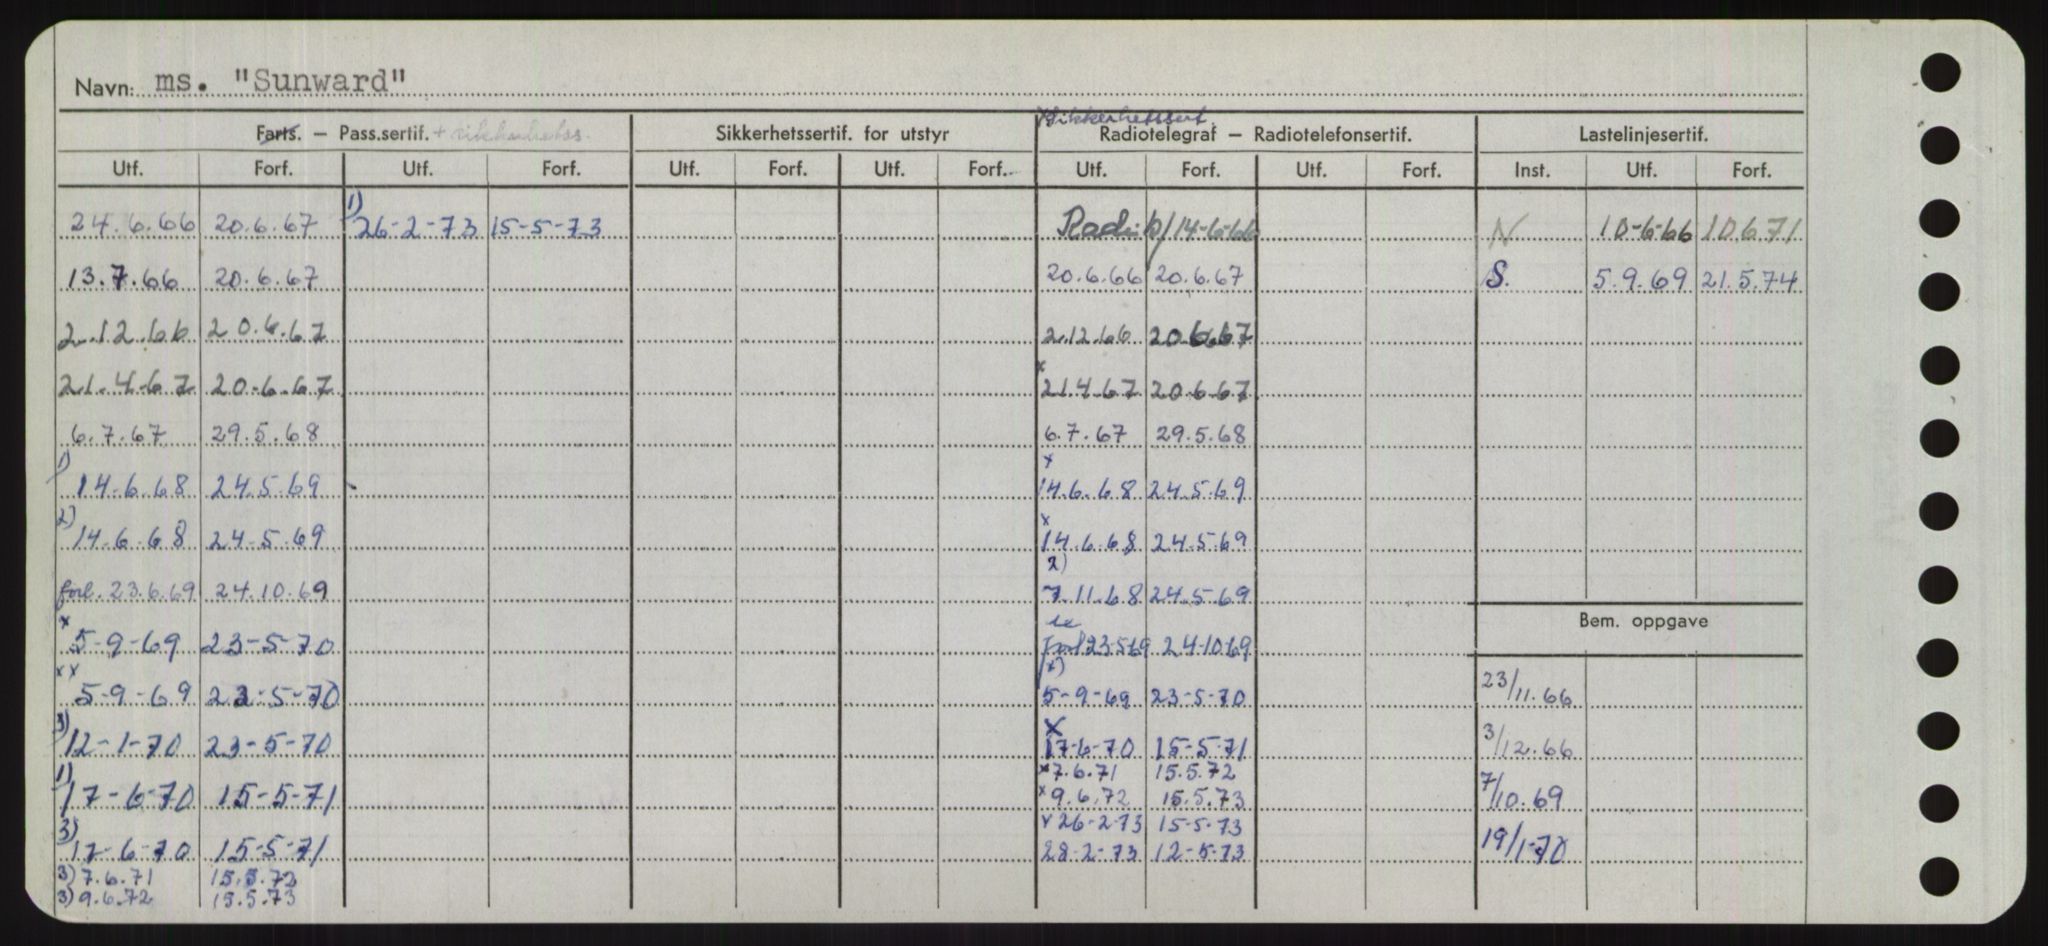 Navn: ms. "Sunward"
Sikkerhetssert.
Farts. — Pass.sertif. + sikkerhetss. Sikkerhetssertif. for utstyr Radiotelegraf — Radiotelefonsertif. Lastelinjesertif.
Utf. Forf. Utf. Forf. Utf. Forf. Utf. Forf. Utf. Forf. Utf. Forf. Inst. Utf. Forf.
24.6.66 20.6.67 1) 26-2-73 15-5-73 Radio 14-6-66 N 10-6-66 10.6.71
13.7.66 20.6.67 20.6.66 20.6.67 S. 5.9.69 21.5.74
2.12.66 20.6.67 2.12.66 20.6.67
21.4.67 20.6.67 x 21.4.67 20.6.67
6.7.67 29.5.68 6.7.67 29.5.68
1) 14.6.68 24.5.69 x 14.6.68 24.5.69
2) 14.6.68 24-5.69 x 14.6.68 24.5.69
forl. 23.6.69 24.10.69 2) 7.11.68 24.5.69
Bem. oppgave
x 5-9-69 23-5-70 forl 23-5-69 24-10-69
xx 5-9-69 23-5-70 x) 5-9-69 23-5-70 23/11.66
3) 12-1-70 23-5-70 x 17-6-70 15-5-71 3/12.66
x 7.6.71 15.5.72
1) 17-6-70 15-5-71 x 9.6.72 15.5.73 7/10.69
x 26-2-73 15-5-73
3) 17-6-70 15-5-71 28-2-73 12-5-73 19/1-70
3) 7.6.71 15.5.72
3) 9.6.72 15.5.73